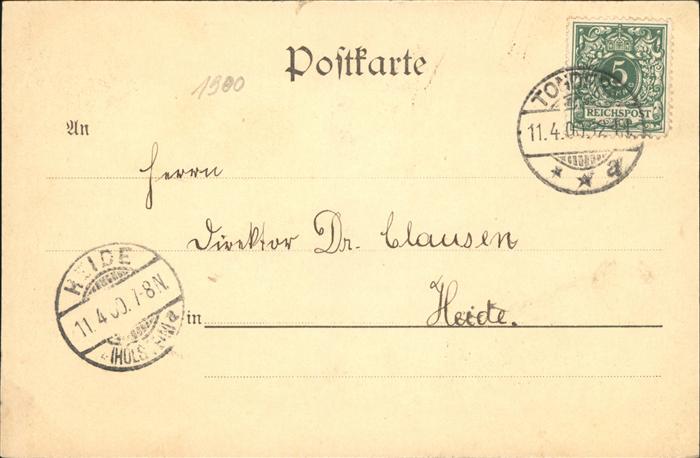 Postkarte
1900
5
REICHSPOST
11.4.00.
a
An
Herrn
Direktor Dr. Clausen
in Heide.
HEIDE
11.4.00.7-8N.
(HOLSTEIN) a